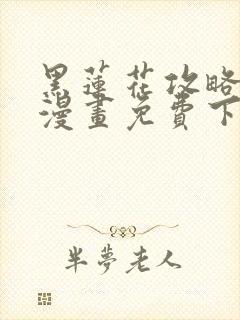 黑蓮花攻略
漫畫免費下
半夢老人